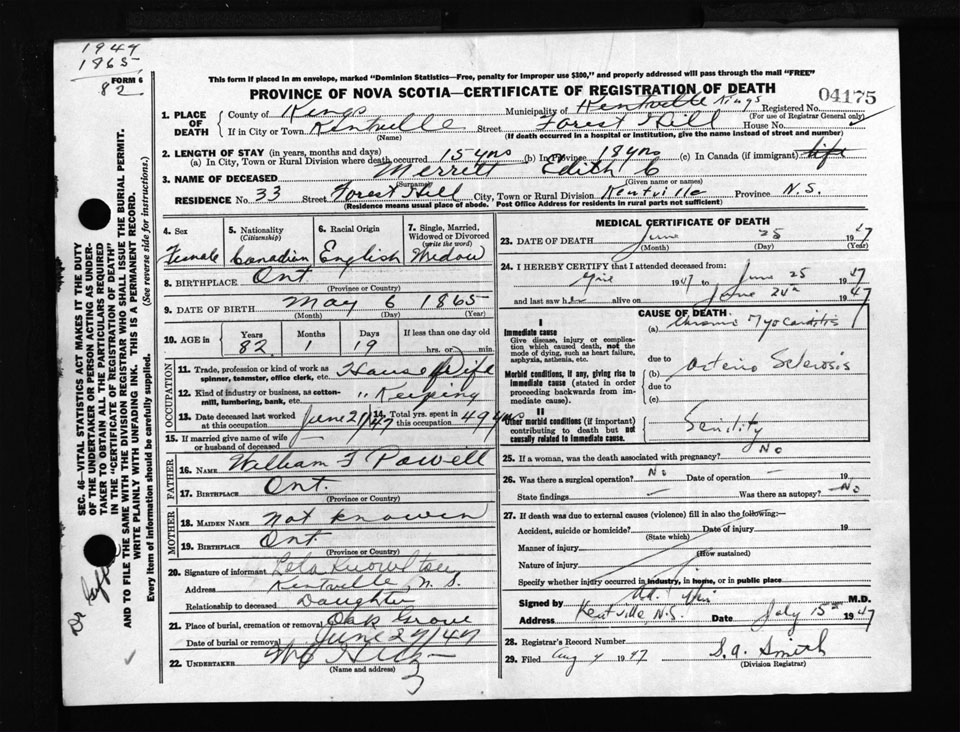 1949
1865
82
FORM 6
This form if placed in an envelope, marked "Dominion Statistics—Free, penalty for improper use $300," and properly addressed will pass through the mail "FREE"
PROVINCE OF NOVA SCOTIA—CERTIFICATE OF REGISTRATION OF DEATH
04175
1. PLACE OF DEATH
County of Kings Municipality of Kentville Kings Registered No.
(For use of Registrar General only)
If in City or Town Kentville Street Forest Hill House No.
(Name) (If death occurred in a hospital or institution, give the name instead of street and number)
2. LENGTH OF STAY (in years, months and days)
(a) In City, Town or Rural Division where death occurred 15 yrs (b) In Province 18 yrs (c) In Canada (if immigrant) life
3. NAME OF DECEASED Merritt Edith C
(Surname) (Given name or names)
RESIDENCE No. 33 Street Forest Hill City, Town or Rural Division Kentville Province N.S.
(Residence means usual place of abode. Post Office Address for residents in rural parts not sufficient)
4. Sex 5. Nationality (Citizenship) 6. Racial Origin 7. Single, Married, Widowed or Divorced (write the word)
Female Canadian English Widow
8. BIRTHPLACE Ont
(Province or Country)
9. DATE OF BIRTH May 6 1865
(Month) (Day) (Year)
10. AGE in Years Months Days If less than one day old
82 1 19 hrs. or min.
OCCUPATION
11. Trade, profession or kind of work as spinner, teamster, office clerk, etc. House Wife
12. Kind of industry or business, as cotton-mill, lumbering, bank, etc. " Keeping
13. Date deceased last worked at this occupation June 2 /47 14. Total yrs. spent in this occupation 49 yrs
15. If married give name of wife or husband of deceased —
FATHER
16. NAME William F Powell
17. BIRTHPLACE Ont.
(Province or Country)
MOTHER
18. MAIDEN NAME not known
19. BIRTHPLACE Ont
(Province or Country)
20. Signature of informant Lela Knowlton
Address Kentville N.S.
Relationship to deceased Daughter
21. Place of burial, cremation or removal Oak Grove
Date of burial or removal June 27/47
22. UNDERTAKER
(Name and address)
MEDICAL CERTIFICATE OF DEATH
23. DATE OF DEATH June 25 1947
(Month) (Day) (Year)
24. I HEREBY CERTIFY that I attended deceased from:
1947 to June 25 1947
and last saw her alive on June 24th 1947
CAUSE OF DEATH
I
Immediate cause
Give disease, injury or complication which caused death, not the mode of dying, such as heart failure, asphyxia, asthenia, etc.
(a) Chronic Myocarditis
due to
Morbid conditions, if any, giving rise to immediate cause (stated in order proceeding backwards from immediate cause).
(b) Arterio Sclerosis
due to
(c)
II
Other morbid conditions (if important) contributing to death but not causally related to immediate cause.
Senility
25. If a woman, was the death associated with pregnancy? No
26. Was there a surgical operation? No Date of operation — 19
State findings — Was there an autopsy? No
27. If death was due to external causes (violence) fill in also the following:—
Accident, suicide or homicide? Date of injury 19
(State which)
Manner of injury
(How sustained)
Nature of injury
Specify whether injury occurred in industry, in home, or in public place
Signed by M.D.
Address Kentville, N.S. Date July 15th 1947
28. Registrar's Record Number
29. Filed Aug 4 1947 S.A. Smith
(Division Registrar)
SEC. 46—VITAL STATISTICS ACT MAKES IT THE DUTY
OF THE UNDERTAKER OR PERSON ACTING AS UNDER-
TAKER TO OBTAIN ALL THE PARTICULARS REQUIRED
IN THE "CERTIFICATE OF REGISTRATION OF DEATH"
AND TO FILE THE SAME WITH THE DIVISION REGISTRAR WHO SHALL ISSUE THE BURIAL PERMIT.
WRITE PLAINLY WITH UNFADING INK. THIS IS A PERMANENT RECORD.
Every item of information should be carefully supplied. (See reverse side for instructions.)